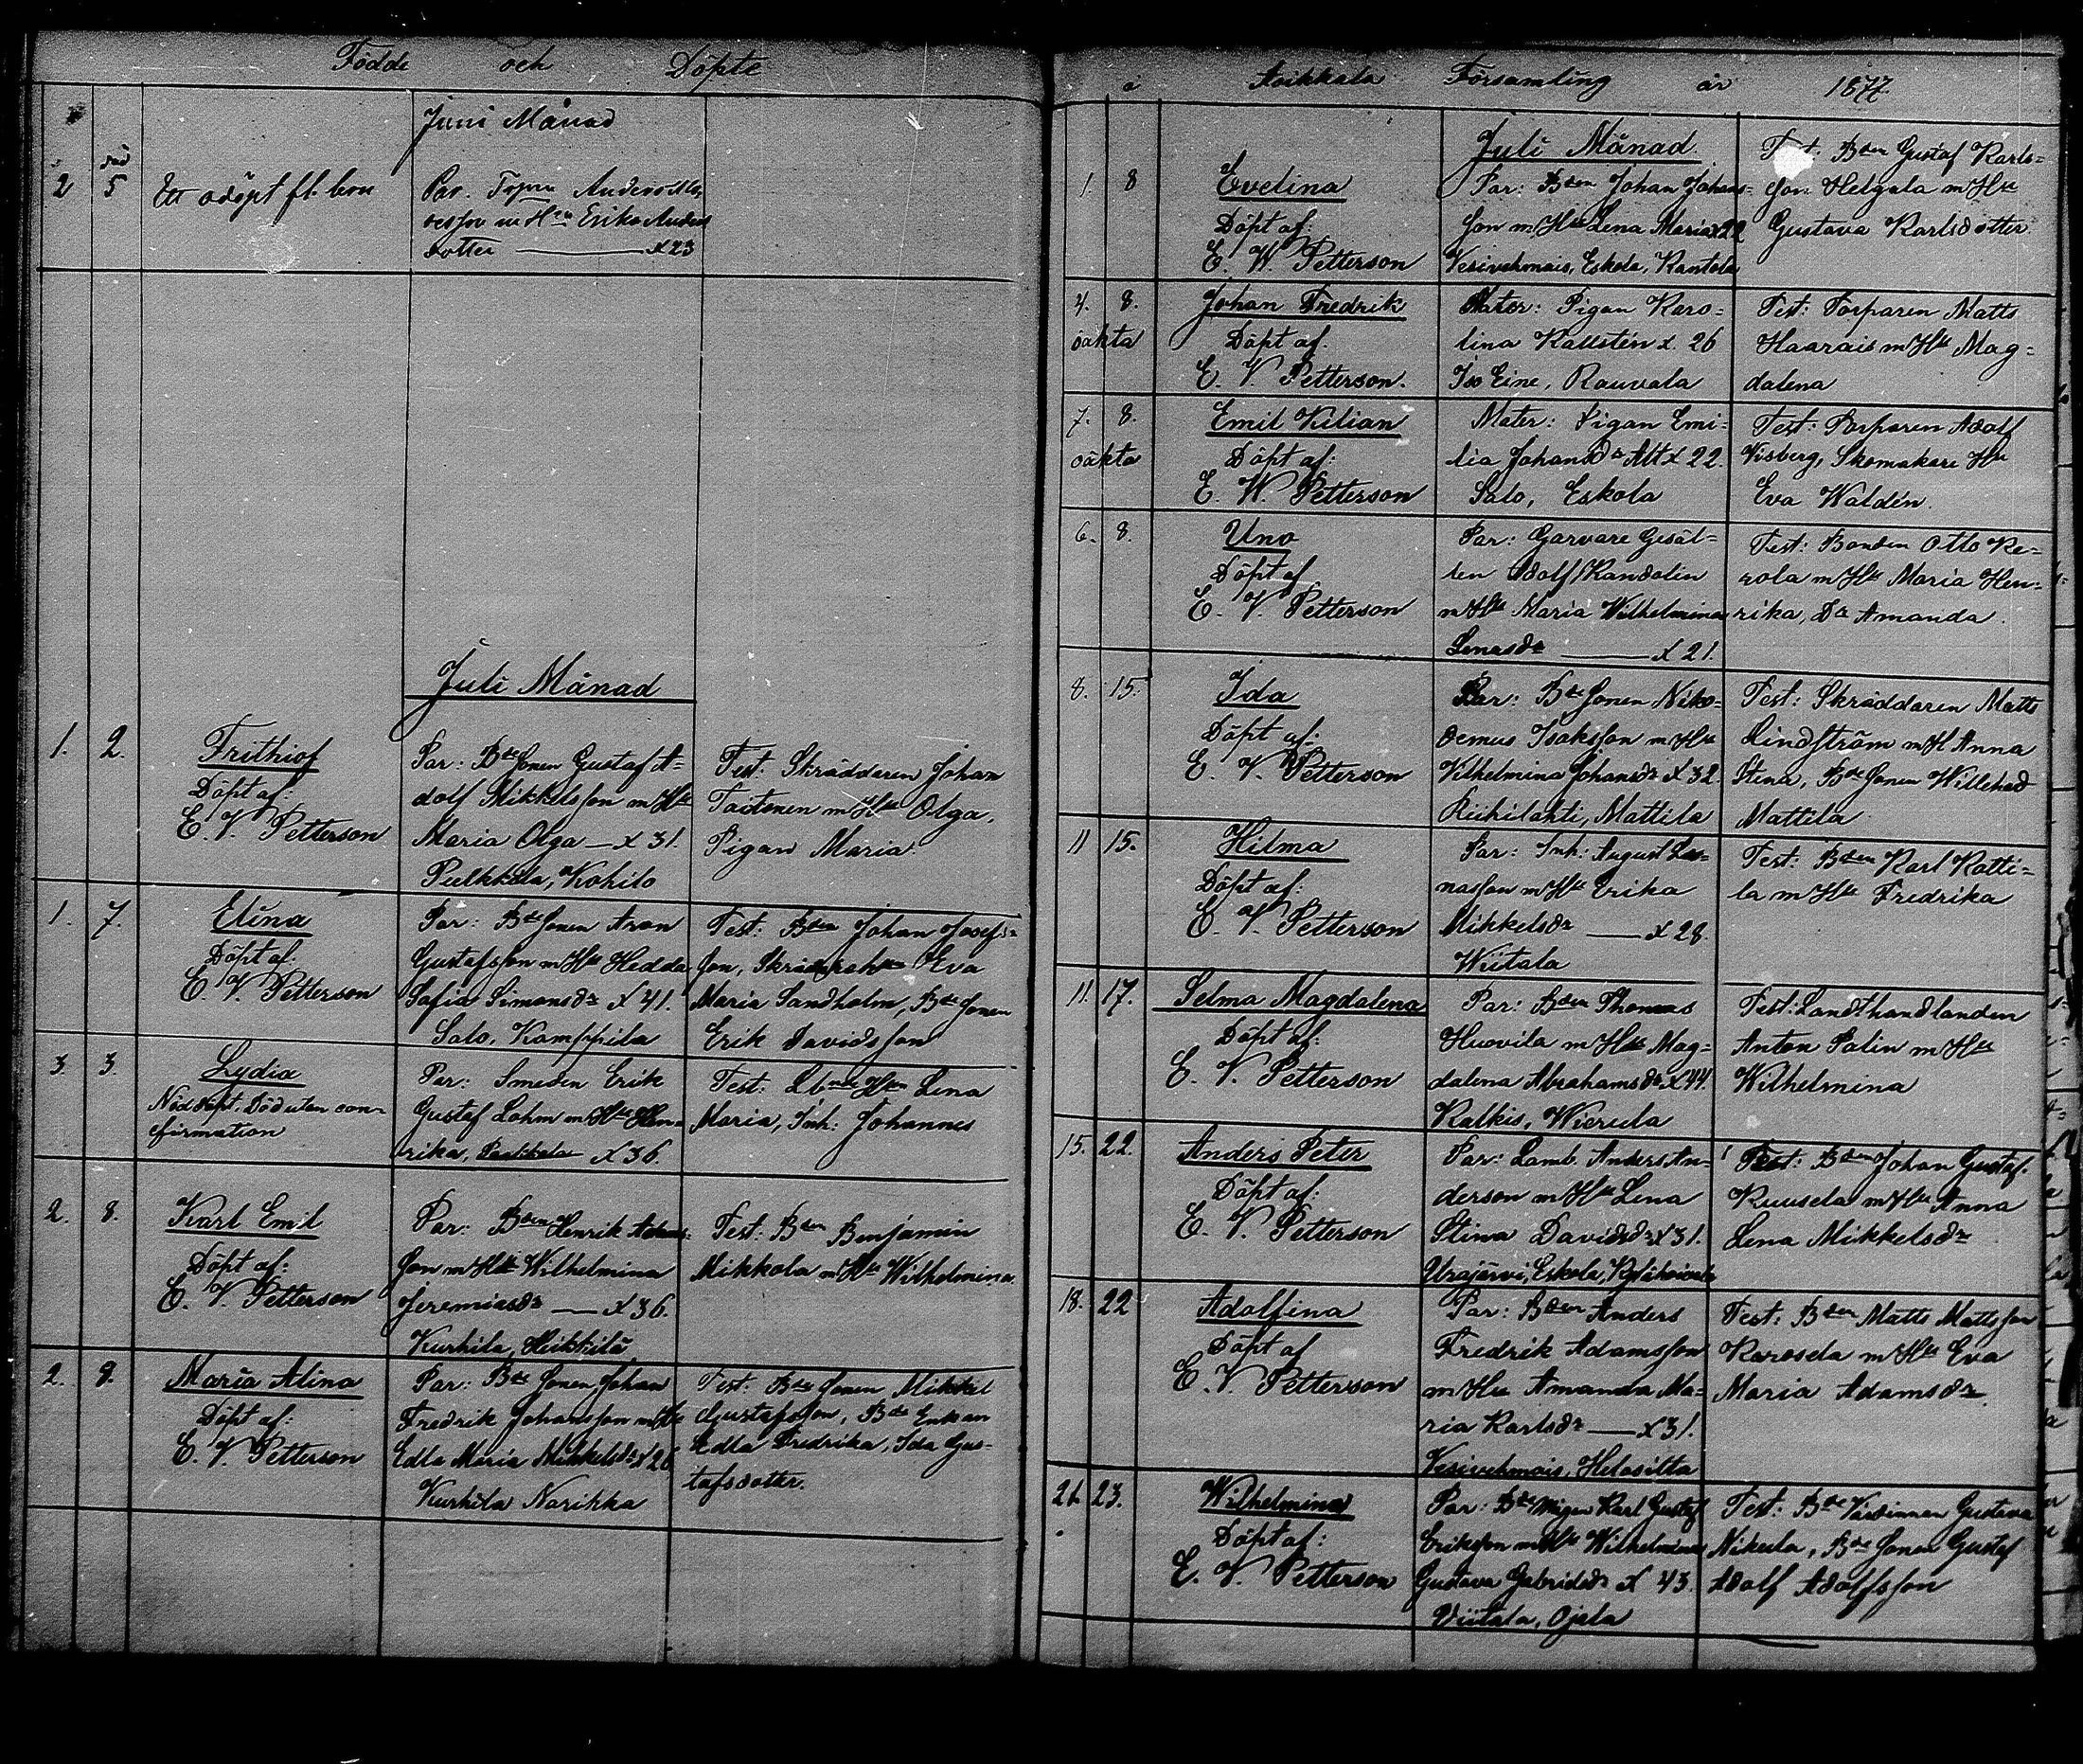 Födde och Döpte
Juni Månad
2 5 Ett odöpt fl. barn
Par. Anders
m Hu Erika Anders
dotter — x 23
Juli Månad
1. 2. Frithiof
Döpt af:
E. V. Petterson
Par: Bde Sonen Gustaf A=
dolf Mikkelsson m Hu
Maria Olga — x 31.
Pulkkila, Kohilo
Test: Skräddaren Johan
Taitonen m Hu Olga,
Pigan Maria.
1. 7. Elina
Döpt af:
E. V. Petterson
Par: Bde Sonen Aron
Gustafsson m Hu Hedda
Sofia Simonsdr x 41.
Salo, Kamppila
Test: Bden Johan Josefs=
son, Eva
Maria Sandholm, Bde Sonen
Erik Davidsson
3. 3. Lydia
Nöddöpt. Död utan con-
firmation
Par: Smeden Erik
Gustaf Lohm m Hu Hen=
rika, x 36.
Test: Hun Lena
Maria, Inh: Johannes
2. 8. Karl Emil
Döpt af:
E. V. Petterson
Par: Bden Henrik Adams=
son m Hu Wilhelmina
Jeremiasdr — x 36.
Kurhila, Heikkilä
Test: Bden Benjamin
Mikkola m Hu Wilhelmina.
2. 9. Maria Alina
Döpt af:
E. V. Petterson
Par: Bde Sonen Johan
Fredrik Johansson m Hu
Edla Maria Mikkelsdr x 26
Kurhila Narikka
Test: Bde Sonen Mikkel
Gustafsson, Bde Enkan
Edla Fredrika, Ida Gus-
tafsdoter.
i Asikkala Församling år 1877.
Juli Månad
1. 8 Evelina
Döpt af:
E. W. Petterson
Par: Bden Johan Johans=
son m Hu Lena Maria x 22
Vesivehmais, Eskola, Kantola
Test: Bden Gustaf Karls=
son Helgala m Hu
Gustava Karlsdotter.
4. 8. Johan Fredrik
oäkta Döpt af.
E. V. Petterson.
Mater: Pigan Karo=
lina Kallstén x. 26
Iso Eine, Rauvala
Test: Torparen Matts
Haarais m Hu Mag=
dalena
7. 8. Emil Kilian
oäkta Döpt af:
E. W. Petterson
Mater: Pigan Emi=
lia Johansdr Alt x 22.
Salo, Eskola
Test: Torparen Adolf
Visberg, Skomakare Hu
Eva Waldén.
6. 8. Uno
Döpt af
E. V. Petterson
Par: Garvare Gesäl=
len Adolf Randolin
m Hu Maria Wilhelmina
Lenasdr — x 21.
Test: Bonden Otto Ke=
rola m Hu Maria Hen=
rika, Dr Amanda.
8. 15. Ida
Döpt af:
E. V. Petterson
Par: Bde Sonen Niko=
demus Isaksson m Hu
Vilhelmina Johansdr x 32.
Riihilahti, Mattila
Test: Skräddaren Matts
Lindström m H Anna
Stina, Bde Sonen Willehad
Mattila
11 15. Hilma
Döpt af:
E. V. Petterson
Par: Inh: August Le=
nasson m Hu Erika
Mikkelsdr — x 28.
Wiitala
Test: Bden Karl Kotti=
la m Hu Fredrika
11. 17. Selma Magdalena
Döpt af:
E. V. Petterson
Par: Bden Thomas
Huovila m Hu Mag=
dalena Abrahamsdr x 44.
Kalkis, Wierula
Test: Landthandlanden
Anton Salin m Hu
Wilhelmina
15. 22. Anders Peter
Döpt af:
E. V. Petterson
Par: Lamb. Anders An=
derson m Hu Lena
Stina Davidsdr x 31.
Urajärvi, Eskola,
Test: Bden Johan Gustaf
Kuusela m Hu Anna
Lena Mikkelsdr
18. 22 Adolfina
Döpt af
E. V. Petterson
Par: Bden Anders
Fredrik Adamsson
m Hu Amanda Ma=
ria Karlsdr — x 31.
Vesivehmais, Helasilta
Test: Bden Matts Mattsson
Karosela m Hu Eva
Maria Adamsdr.
21. 23. Wilhelmina
Döpt af:
E. V. Petterson
Par: Bde Mågen Karl Gustaf
Eriksson m Hu Wilhelmina
Gustava Gabrielsdr x 43.
Viitala, Ojala
Test: Bde Värdinnan Gustava
Nikula, Bde Sonen Gustaf
Adolf Adolfsson